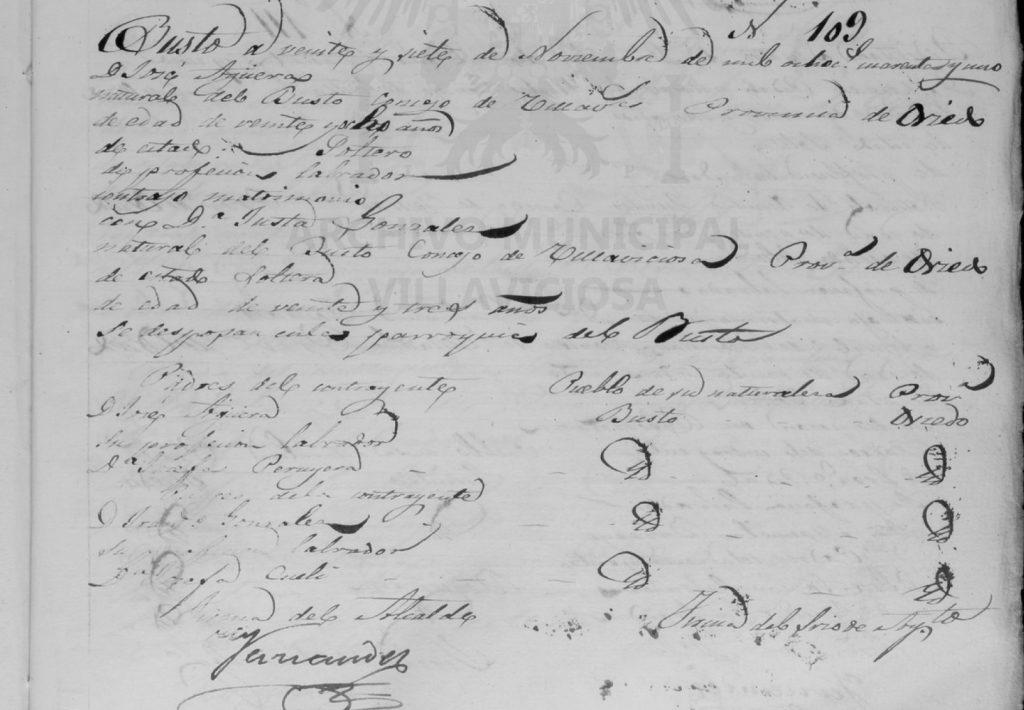 N 109
Busto a veinte y siete de Noviembre de mil ochoc.s cuarenta y uno
D José Agüera
natural del Busto Concejo de Villav.s Provincia de Oviedo
de edad de veinte y ocho años
de estado Soltero
de profecion labrador
contrajo matrimonio
con D.a Justa Gonzalez
natural del Busto Concejo de Villaviciosa Prov.a de Oviedo
de estado Soltera
de edad de veinte y tres años
se desposan en la parroquia del Busto
Padres del contrayente Pueblo de su naturaleza Prov.a
D José Agüera Busto Oviedo
Su profecion labrador
D.a Josefa Peruyera Id Id
de la contrayente
D Gonzalez Id Id
Su labrador
D.a Josefa Cueli Id Id
Firma del Alcalde Firma del Srio de Ay.to
Fernandez
ARCHIVO MUNICIPAL
VILLAVICIOSA